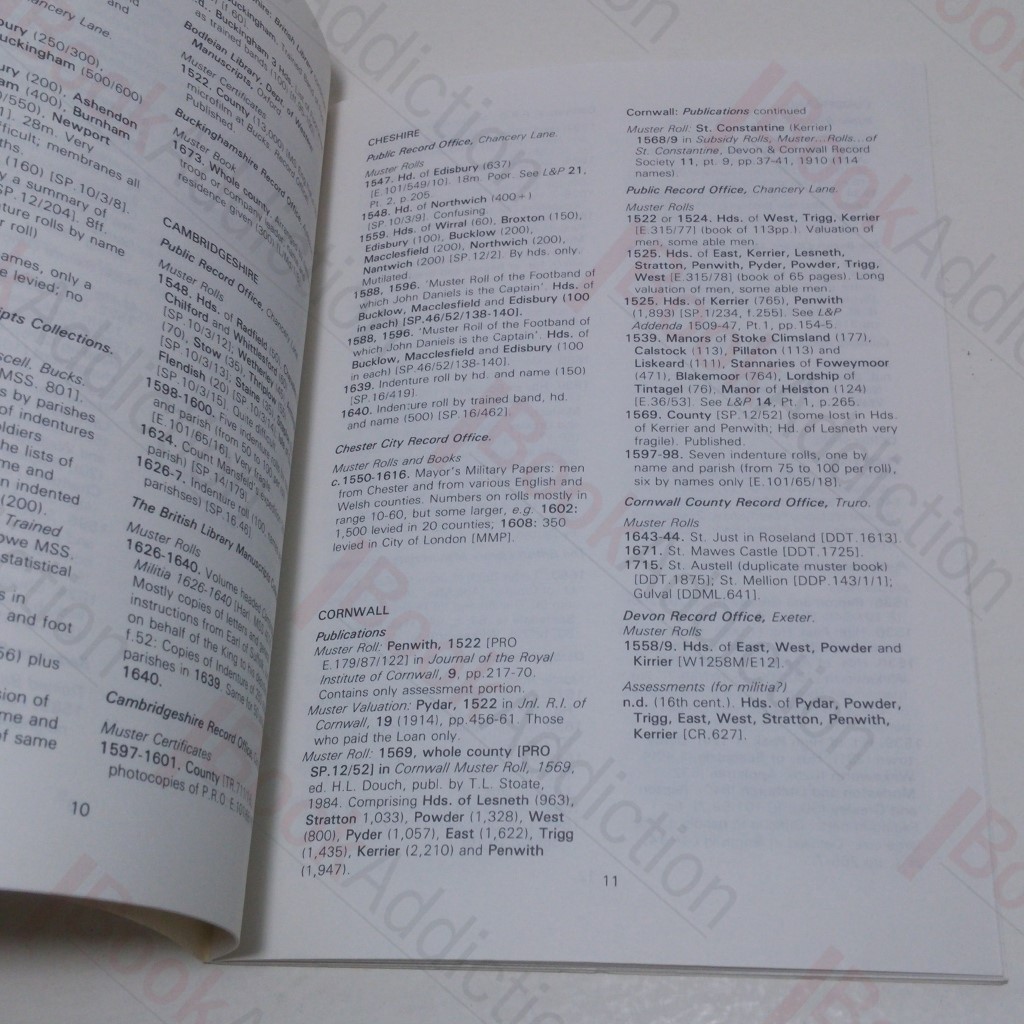 Chancery Lane.
bury (250/300),
uckingham (500/600)
ury (200), Ashendon
am (400), Burnham
/550), Newport
1]. 28m. Very
fficult; membranes all
ths.
(160) [SP.10/3/8].
y a summary of
SP.12/204]. 8ff.
nture rolls by name
r roll)
ames, only a
e levied; no
ripts Collections.
scell. Bucks.
MSS. 801].
s by parishes
of indentures
oldiers
he lists of
me and
n indented
(200).
Trained
owe MSS.
statistical
s in
and foot
56) plus
sion of
me and
of same
Buckingham 3 Hds.
as trained bands (100)
Bodleian Library, Dept. of Western
Manuscripts, Oxford.
Muster Certificates
1522. County (13,000)
microfilm at Bucks. Record
Published.
Buckinghamshire Record Office,
Muster Book
1673. Whole county. Arranged
troop or company header,
residence given (300)
CAMBRIDGESHIRE
Public Record Office, Chancery Lane.
Muster Rolls
1548. Hds. of Radfield (50),
Chilford and Whittlesford
[SP.10/3/12]; Wetherley
(70), Stow (35), Thriplow
[SP.10/3/13]; Staine
Flendish (20) [SP.10/3/14],
[SP.10/3/15]. Quite difficult
1598-1600. Five indenture
and parish (from 50 to 100
[E.101/65/16]. Very large
1624. Count Mansfeld's expedition
parish) [SP.14/179].
1626-7. Indenture roll (100
parishses) [SP.16.46].
The British Library Manuscripts
Muster Rolls
1626-1640. Volume headed
Militia 1626-1640 [Harl. MSS.
Mostly copies of letters and
instructions from Earl of Suffolk
on behalf of the King to
f.52: Copies of Indenture of
parishes in 1639. Same for
1640.
Cambridgeshire Record Office,
Muster Certificates
1597-1601. County
photocopies of P.R.O. E.101
10
CHESHIRE
Public Record Office, Chancery Lane.
Muster Rolls
1547. Hd. of Edisbury (637)
[E.101/549/10]. 18m. Poor. See L&P 21,
Pt. 2, p.205.
1548. Hd. of Northwich (400+)
[SP.10/3/9]. Confusing.
1559. Hds. of Wirral (60), Broxton (150),
Edisbury (100), Bucklow (200),
Macclesfield (200), Northwich (200),
Nantwich (200) [SP.12/2]. By hds. only.
Mutilated.
1588, 1596. 'Muster Roll of the Footband of
which John Daniels is the Captain'. Hds. of
Bucklow, Macclesfield and Edisbury (100
in each) [SP.46/52/138-140].
1588, 1596. 'Muster Roll of the Footband of
which John Daniels is the Captain'. Hds. of
Bucklow, Macclesfield and Edisbury (100
in each) [SP.46/52/138-140].
1639. Indenture roll by hd. and name (150)
[SP.16/419].
1640. Inden:ure roll by trained band, hd.
and name (500) [SP.16/462].
Chester City Record Office.
Muster Rolls and Books
c.1550-1616. Mayor's Military Papers: men
from Chester and from various English and
Welsh counties. Numbers on rolls mostly in
range 10-60, but some larger, e.g. 1602:
1,500 levied in 20 counties; 1608: 350
levied in City of London [MMP].
CORNWALL
Publications
Muster Roll: Penwith, 1522 [PRO
E.179/87/122] in Journal of the Royal
Institute of Cornwall, 9, pp.217-70.
Contains only assessment portion.
Muster Valuation: Pydar, 1522 in Jnl. R.I. of
Cornwall, 19 (1914), pp.456-61. Those
who paid the Loan only.
Muster Roll: 1569, whole county [PRO
SP.12/52] in Cornwall Muster Roll, 1569,
ed. H.L. Douch, publ. by T.L. Stoate,
1984. Comprising Hds. of Lesneth (963),
Stratton 1,033), Powder (1,328), West
(800), Pyder (1,057), East (1,622), Trigg
(1,435), Kerrier (2,210) and Penwith
(1,947).
Cornwall: Publications continued
Muster Roll: St. Constantine (Kerrier)
1568/9 in Subsidy Rolls, Muster...Rolls.. of
St. Constantine, Devon & Cornwall Record
Society 11, pt. 9, pp.37-41, 1910 (114
names).
Public Record Office, Chancery Lane.
Muster Rolls
1522 or 1524. Hds. of West, Trigg, Kerrier
[E.315/77] (book of 113pp.). Valuation of
men, some able men.
1525. Hds. of East, Kerrier, Lesneth,
Stratton, Penwith, Pyder, Powder, Trigg,
West [E.315/78] (book of 65 pages). Long
valuation of men, some able men.
1525. Hds. of Kerrier (765), Penwith
(1,893) [SP.1/234, f.255]. See L&P
Addenda 1509-47, Pt.1, pp.154-5.
1539. Manors of Stoke Climsland (177),
Calstock (113), Pillaton (113) and
Liskeard (111), Stannaries of Foweymoor
(471), Blakemoor (764), Lordship of
Tintagel (76), Manor of Helston (124)
[E.36/53]. See L&P 14, Pt. 1, p.265.
1569. County [SP.12/52] (some lost in Hds.
of Kerrier and Penwith; Hd. of Lesneth very
fragile). Published.
1597-98. Seven indenture rolls, one by
name and parish (from 75 to 100 per roll),
six by names only [E.101/65/18].
Cornwall County Record Office, Truro.
Muster Rolls
1643-44. St. Just in Roseland [DDT.1613].
1671. St. Mawes Castle [DDT.1725].
1715. St. Austell (duplicate muster book)
[DDT.1875]; St. Mellion [DDP.143/1/1];
Gulval [DDML.641].
Devon Record Office, Exeter.
Muster Rolls
1558/9. Hds. of East, West, Powder and
Kirrier [W1258M/E12].
Assessments (for militia?)
n.d. (16th cent.). Hds. of Pydar, Powder,
Trigg, East, West, Stratton, Penwith,
Kerrier [CR.627].
11